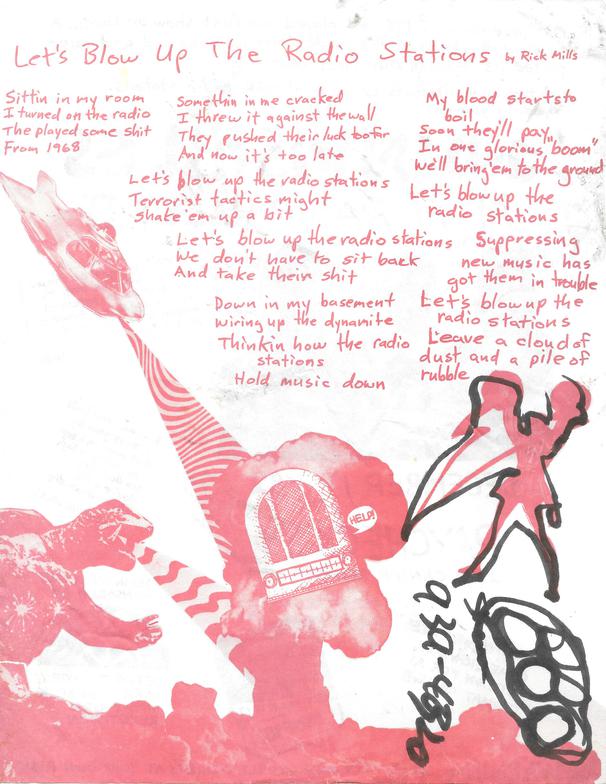 Let's Blow Up The Radio Stations by Rick Mills
Sittin in my room
I turned on the radio
The played some shit
From 1968
Somethin in me cracked
I threw it against the wall
They pushed their luck too far
And now it's too late
Let's blow up the radio stations
Terrorist tactics might
shake 'em up a bit
Let's blow up the radio stations
We don't have to sit back
And take their shit
Down in my basement
wiring up the dynamite
Thinkin how the radio
stations
Hold music down
My blood starts to
boil
Soon they'll pay
In one glorious "boom"
We'll bring 'em to the ground
Let's blow up the
radio stations
Suppressing
new music has
got them in trouble
Let's blow up the
radio stations
Leave a cloud of
dust and a pile of
rubble
HELP!